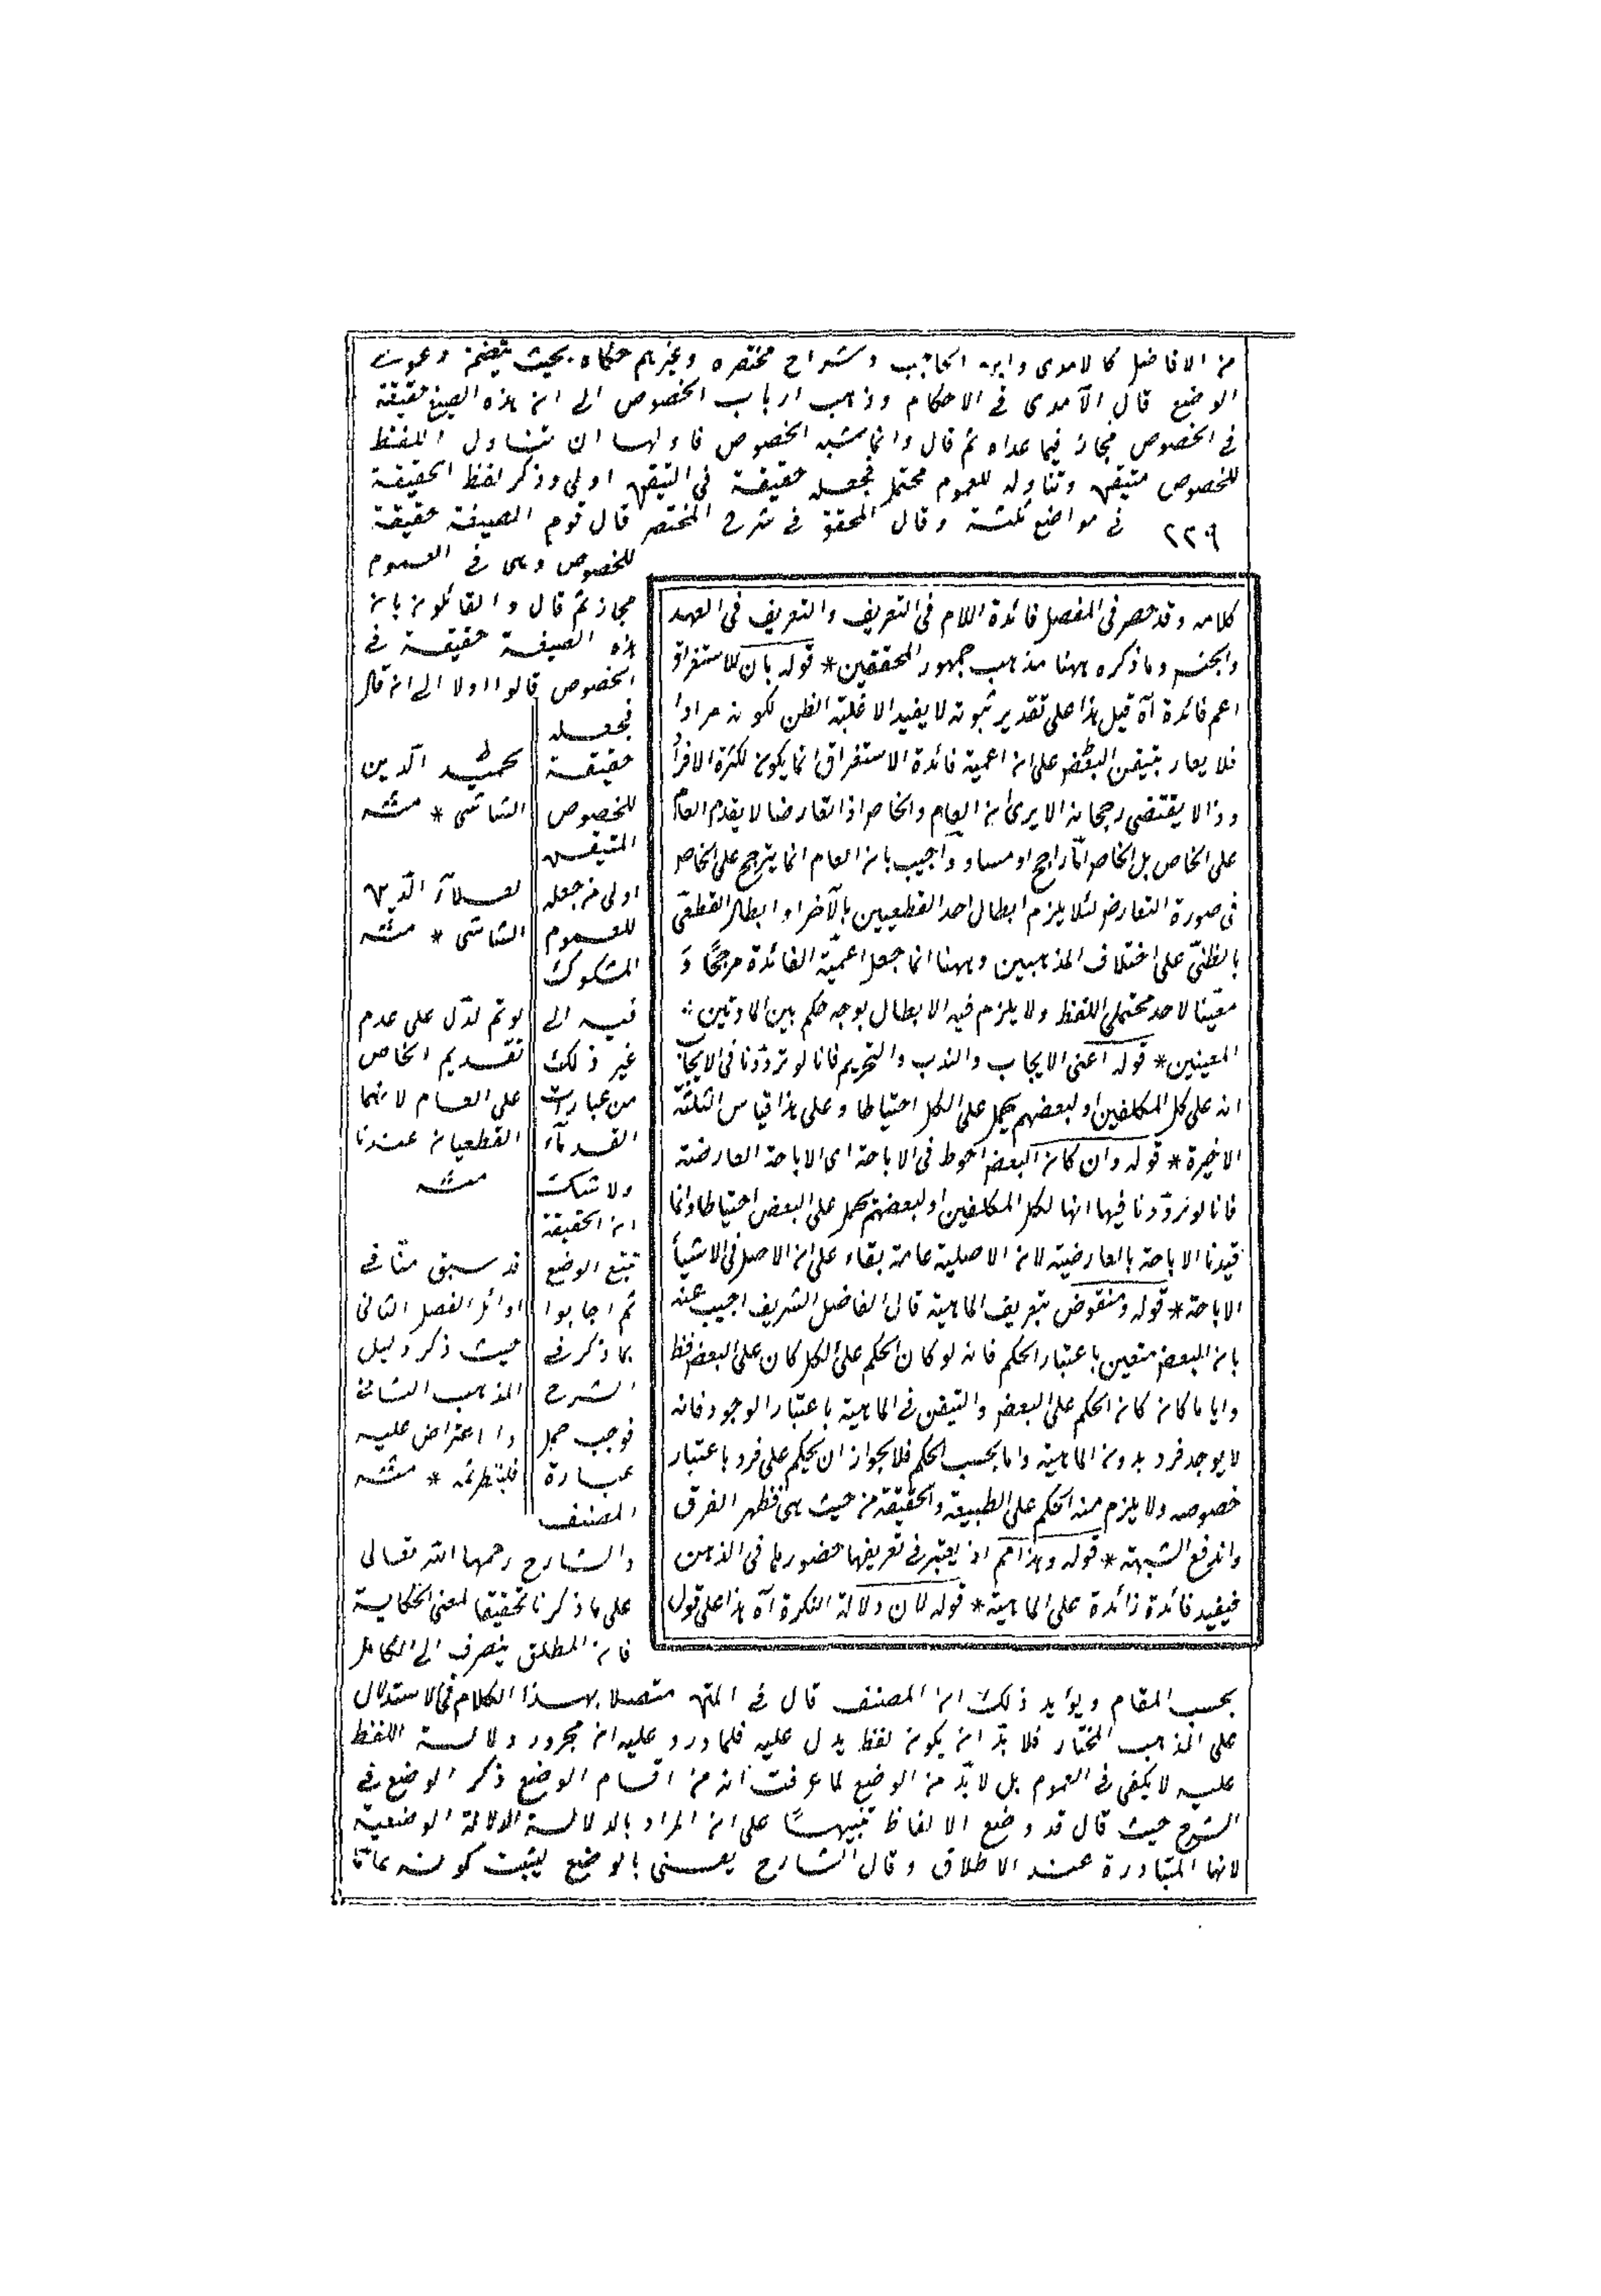 من الافاضل كالامدى وابن الحاجب وشراح مختصره وغيرهم حكاه بحيث يتضمن دعوى
الوضع قال الآمدى فى الاحكام وذهب ارباب الخصوص الى ان هذه الصيغ حقيقة
فى الخصوص مجاز فيما عداه ثم قال وانما شبه الخصوص فاولها ان تناول اللفظ
للخصوص متيقن وتناوله للعموم محتمل فجعله حقيقة فى المتيقن اولى وذكر لفظ الحقيقة
٢٢٩ فى مواضع ثلثة وقال المحقق فى شرح المختصر قال قوم الصيغة حقيقة
للخصوص وهى فى العموم
مجاز ثم قال والقائلون بان
هذه الصيغة حقيقة فى
الخصوص قالوا اولا الى ان قال
فجعله
حقيقة
للخصوص
المتيقن
اولى من جعله
للعموم
المشكوك
فيه الى
غير ذلك
من عبارات
القدمآء
ولا شك
ان الحقيقة
تتبع الوضع
ثم اجابوا
بما ذكر فى
الشرح
فوجب حمل
عبارة
المصنف
والشارح رحمهما الله تعالى
على ما ذكرنا تحقيقا لمعنى الحكاية
فان المطلق ينصرف الى الكامل
بحسب المقام ويؤيد ذلك ان المصنف قال فى المتن متصلا بهذا الكلام فى الاستدلال
على المذهب المختار فلا بدّ ان يكون لفظ يدل عليه فلما ورد عليه ان مجرد دلالة اللفظ
عليه لا يكفى فى العموم بل لا بدّ من الوضع لما عرفت انه من اقسام الوضع ذكر الوضع فى
الشرح حيث قال قد وضع الالفاظ تنبيها على ان المراد بالدلالة الدلالة الوضعية
لانها المتبادرة عند الاطلاق وقال الشارح يعنى بالوضع ليثبت كونه عامّا
كلامه وقد حصر فى المفصل فائدة اللام فى التعريف والتعريف فى العهد
والجنس وما ذكره ههنا مذهب جمهور المحققين * قوله بان للاستغراق
اعم فائدة آه قيل هذا على تقدير ثبوته لا يفيد الا غلبة الظن لكونه مرادا
فلا يعارض بتيقن البعض على ان اعمية فائدة الاستغراق انما يكون لكثرة الافراد
وذا لا يقتضى رجحانه الا يرى ان العام والخاص اذا تعارضا لا يقدم العام
على الخاص بل الخاص امّا راجح او مساو وأجيب بان العام انما يترجح على الخاص
فى صورة التعارض لئلا يلزم ابطال احد القطعيين بالآخر او ابطال القطعى
بالظنىّ على اختلاف المذهبين وههنا انما جعل اعميّة الفائدة مرجحًا و
معيّنا لاحد محتملى اللفظ ولا يلزم فيه الابطال بوجه حكم بين المادتين
المعينين * قوله اعنى الايجاب والندب والتحريم فانا لو تردّدنا فى الايجاب
انه على كل المكلفين او لبعضهم يحمل على الكل احتياطا وعلى هذا قياس الثلثة
الاخيرة * قوله وان كان البعض احوط فى الاباحة اى الاباحة العارضة
فانا لو تردّدنا فيها انها لكل المكلفين او لبعضهم يحمل على البعض احتياطا وانما
قيدنا الاباحة بالعارضية لان الاصلية عامة بقاء على ان الاصل فى الاشيآ
الاباحة * قوله ومنقوض بتعريف الماهية قال الفاضل الشريف اجيب عنه
بان البعض متعين باعتبار الحكم فانه لو كان الحكم على الكل كان على البعض قط
وايا ما كان كان الحكم على البعض والتيقن فى الماهية باعتبار الوجود فانه
لا يوجد فرد بدون الماهية واما بحسب الحكم فلا يجواز ان يحكم على فرد باعتبار
خصوصه ولا يلزم منه الحكم على الطبيعة والحقيقة من حيث هى فظهر الفرق
واندفع الشبهة * قوله وهذا هم اذ يعتبر فى تعريفها حضورها فى الذهن
فيفيد فائدة زائدة على الماهية * قوله لان دلالة النكرة آه هذا على قول
لحميد الدين
الشاشى * منه
لعلآء الدين
الشاشى * منه
لو تم لدلّ على عدم
تقديم الخاص
على العام لانهما
القطعيان عندنا
منه
قد سبق منّا فى
اوائل الفصل الثانى
حيث ذكر دليل
المذهب الثانى
والاعتراض عليه
فليتطرثمه * منه